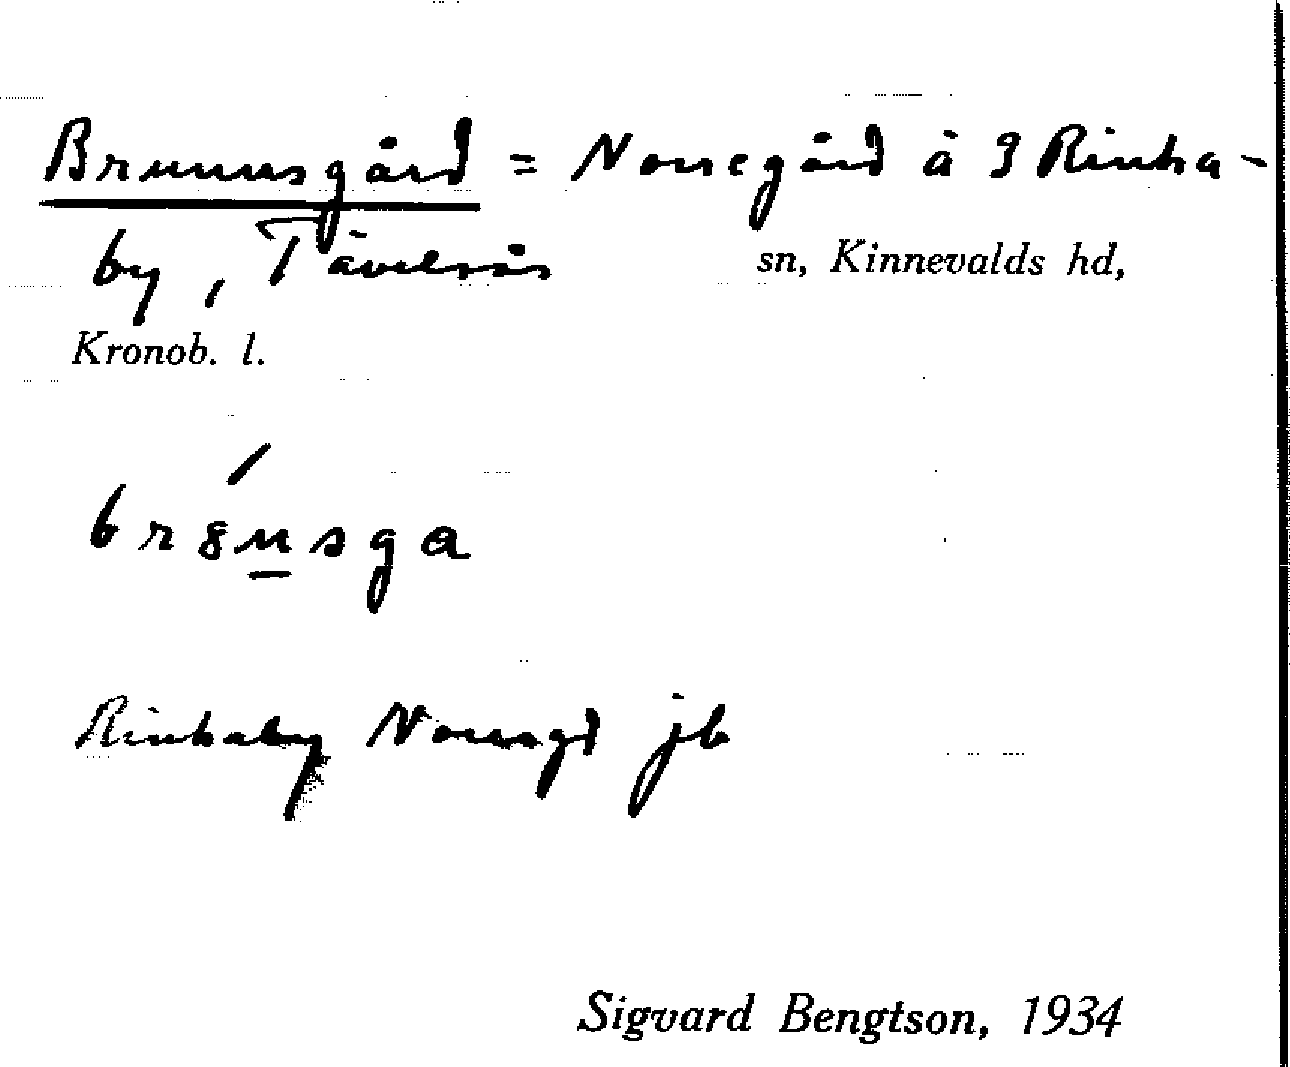 Brunnsgård = Norregård å 3 Rinka-
by, Tävelsås sn, Kinnevalds hd,
Kronob. l.
br8nsga
Rinkaby Norregd jb
Sigvard Bengtson, 1934